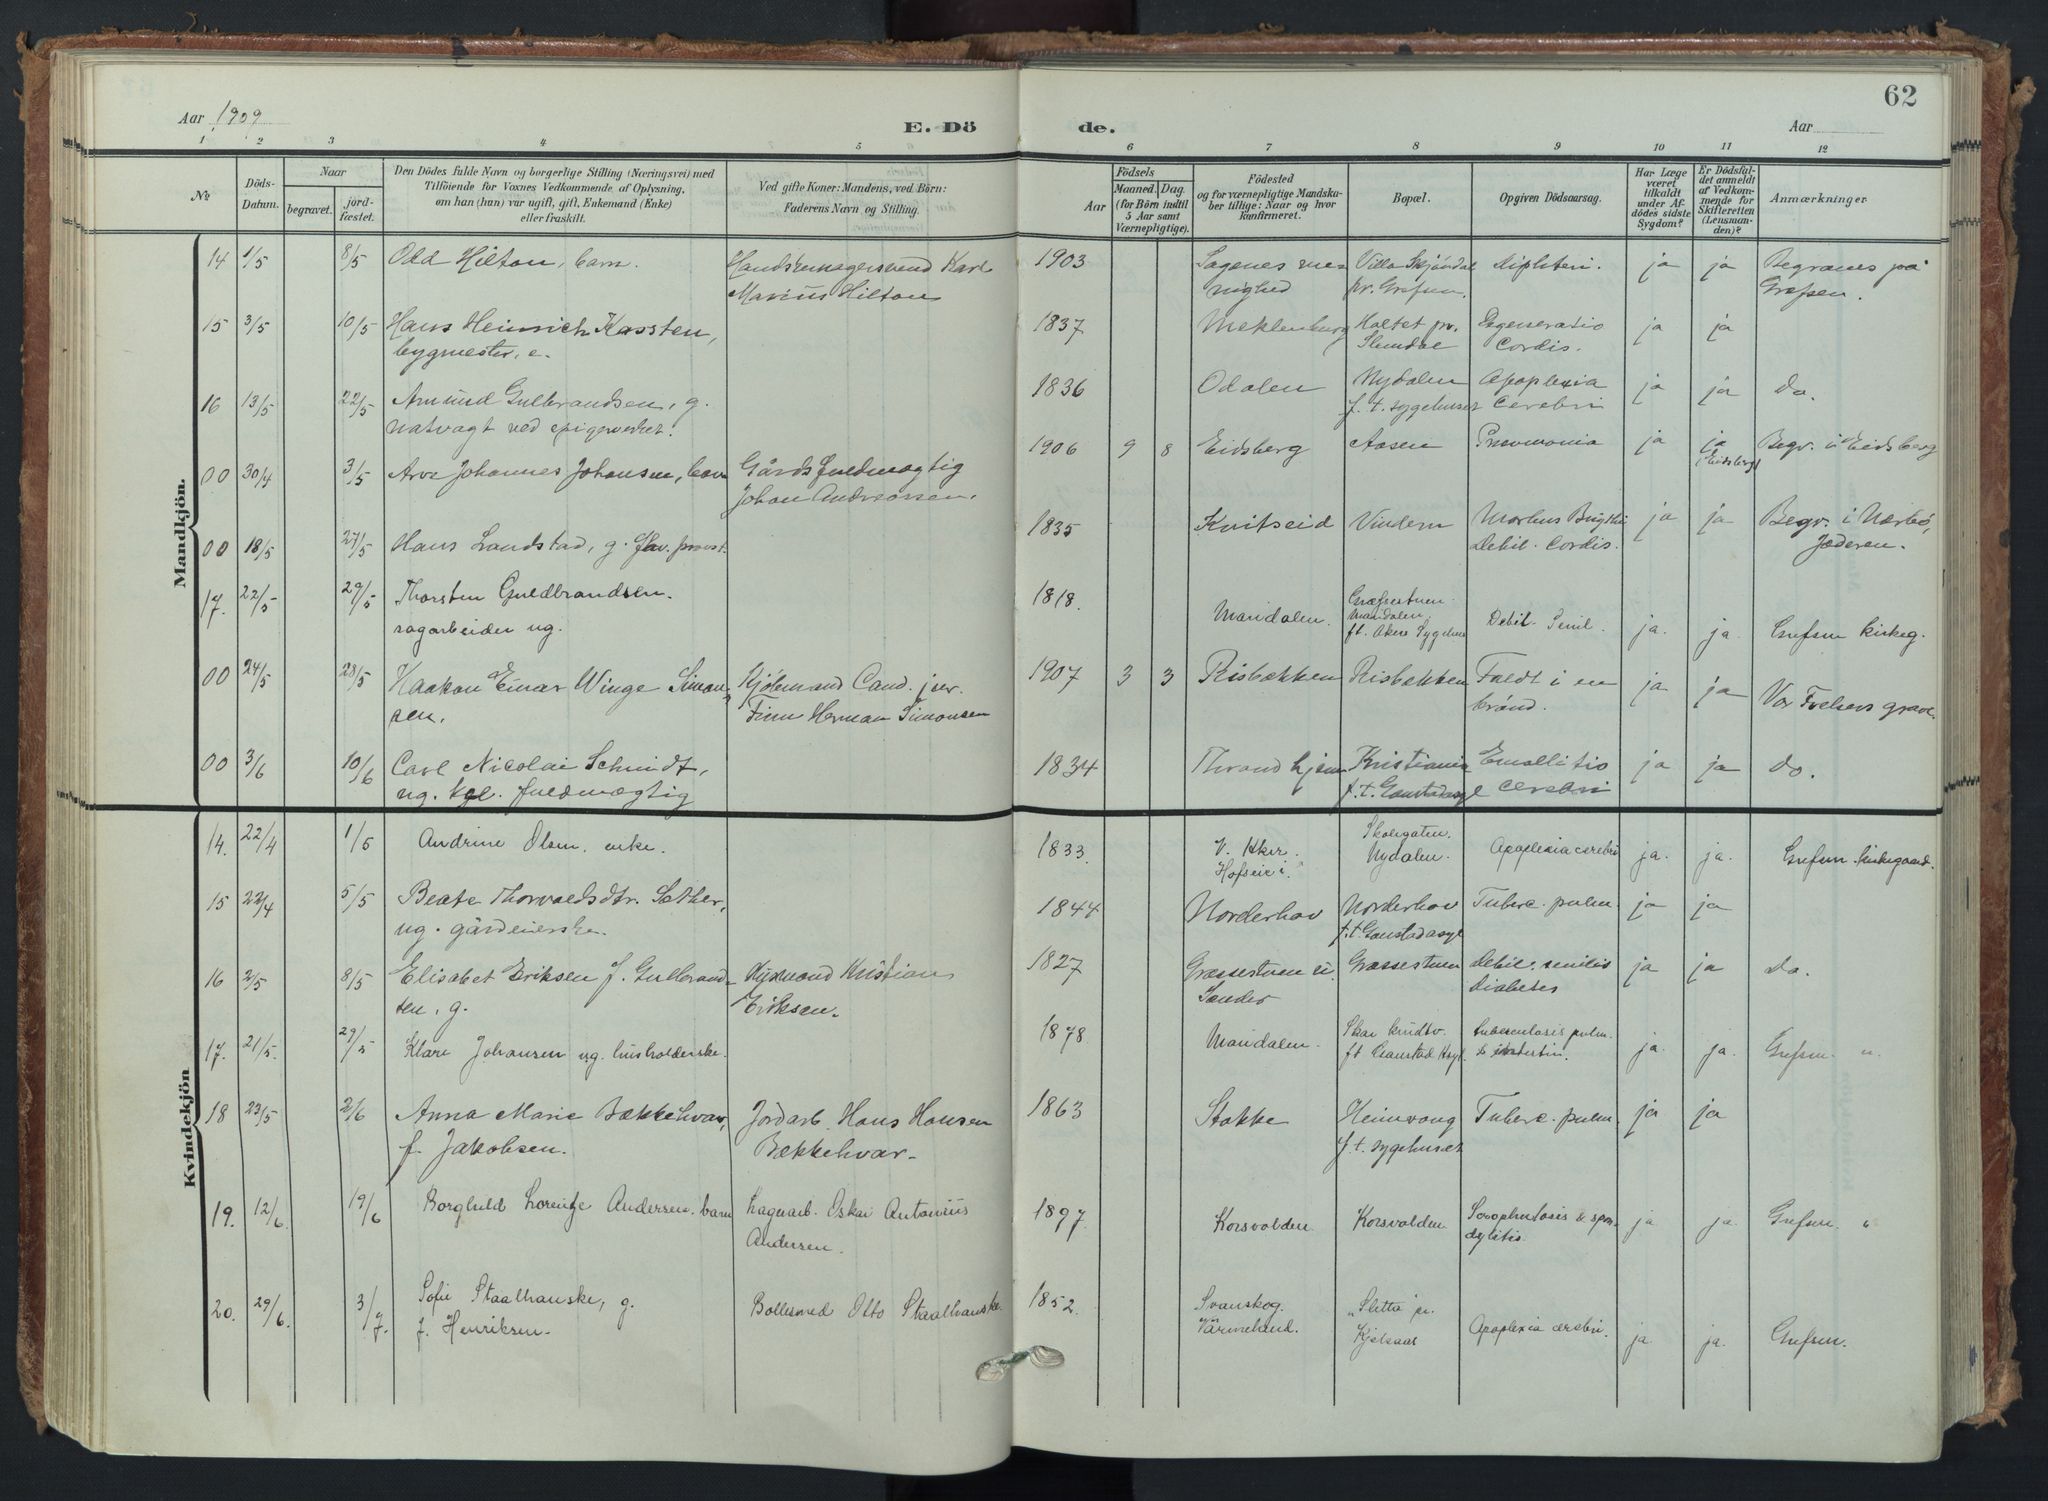 Aar 1909
E. Dö
de.
62
Aar
1 2 3 4 5 6 7 8 9 10 11 12
№
Döds-
Datum.
Naar
begravet.
jord-
fæstet.
Den Dödes fulde Navn og borgerlige Stilling (Næringsvei) med
Tilföiende for Voxnes Vedkommende af Oplysning,
om han (hun) var ugift, gift, Enkemand (Enke)
eller fraskilt.
Ved gifte Koner: Mandens, ved Börn:
Faderens Navn og Stilling.
Födsels
Aar
Maaned.
Dag.
(for Börn indtil
5 Aar samt
Værnepligtige).
Födested
og for værnepligtige Mandska-
ber tillige: Naar og hvor
konfirmeret.
Bopæl.
Opgiven Dödsaarsag.
Har Læge
været
tilkaldt
under Af-
dödes sidste
Sygdom?
Er Dödsfal-
det anmeldt
af Vedkom-
mende for
Skifteretten
(Lensman-
den)?
Anmærkninger
Mandkjön.
14 1/5 8/5 Odd Hilton, barn. Handskemagersvend Karl 1903 Sagenes me- Villa Skjöndal difteri. ja ja Begraves på
Marius Hilton nighed pr. Grefsen. Grefsen.
15 3/5 10/5 Hans Heinrich Kassten, 1837 Meklenburg Holtet pr. Degeneratio ja ja
bygmester, e. Slemdal cordis.
16 13/5 22/5 Amund Gulbrandsen, g. 1836 Odalen Nydalen Apoplexia ja ja do.
natvagt ved spigerverket. f. t. sygehuset cerebri
00 30/4 3/5 Arve Johannes Johansen, barn Gårdsfuldmægtig 1906 9 8 Eidsberg Aasen Pneumonia ja ja Begr. i Eidsberg
Johan Andreassen. (Eidsberg)
00 18/5 27/5 Hans Landstad, g. fhv. provst. 1835 Kvitseid Vindern Morbus Brigthi ja ja Begr. i Nærbö,
Debil. cordis. Jæderen.
17. 22/5 29/5 Thorsten Guldbrandsen. 1818. Maridalen. Græsestuen Debil. senil. ja. ja. Grefsen kirkeg.
sagarbeider ug. Maridalen.
ft. Akers Sygehus
00 24/5 28/5 Haakon Einar Winge Simon- Kjöbmand Cand. jur. 1907 3 3 Risbækken Risbækken Faldt i en ja ja Vor Frelsers grave.
sen. Finn Herman Simonsen brönd.
00 3/6 10/6 Carl Nicolai Schmidt, 1834 Throndhjem Kristiania Emollitio ja ja do.
ug. kgl. fuldmægtig f. t. Gaustadasyl cerebri
Kvindekjön
14. 22/4 1/5 Andrine Olsen, enke. 1833. V. Aker. Skolegaten. Apoplexia cerebri ja. ja. Grefsen kirkegaard.
Nydalen.
15 22/4 5/5 Beate Thorvaldsdtr. Sæther, 1844 Norderhov Norderhov Tuberc. pulm. ja ja
ug. gårdeierske. f. t. Gaustadasyl
16 2/5 8/5 Elisabet Eriksen f. Gulbrand- Husmand Kristian 1827 Græssestuen u. Græssestuen Debil. senilis ja ja Do.
sen, g. Eriksen. Sander Diabetes
17. 21/5. 29/5 Klara Johansen ug. husholderske. 1878 Maridalen. tuberculosis pulm. ja. ja. Grefsen. "
& intestin.
18 23/5 2/6 Anna Marie Bækkehvar, Jordarb. Hans Hansen 1863 Stokke Heimvang Tuberc. pulm. ja ja
f. Jakobsen. Bækkehvar. f. t. sygehuset
19. 12/6. 19/6 Borghild Lorentze Andersen. barn Lagerarb. Oskar Antonius 1897. Korsvolden. Korsvolden Scrophulosis & spon- ja ja. Grefsen "
Andersen. dylitis.
20. 29/6. 3/7. Sofie Staalhanske, g. Boltesmed Otto Staalhanske. 1852. Svanskog. "Sletta" pr. Apoplexia cerebri. ja ja. Grefsen.
f. Henriksen. Värmeland. Kjelsaas